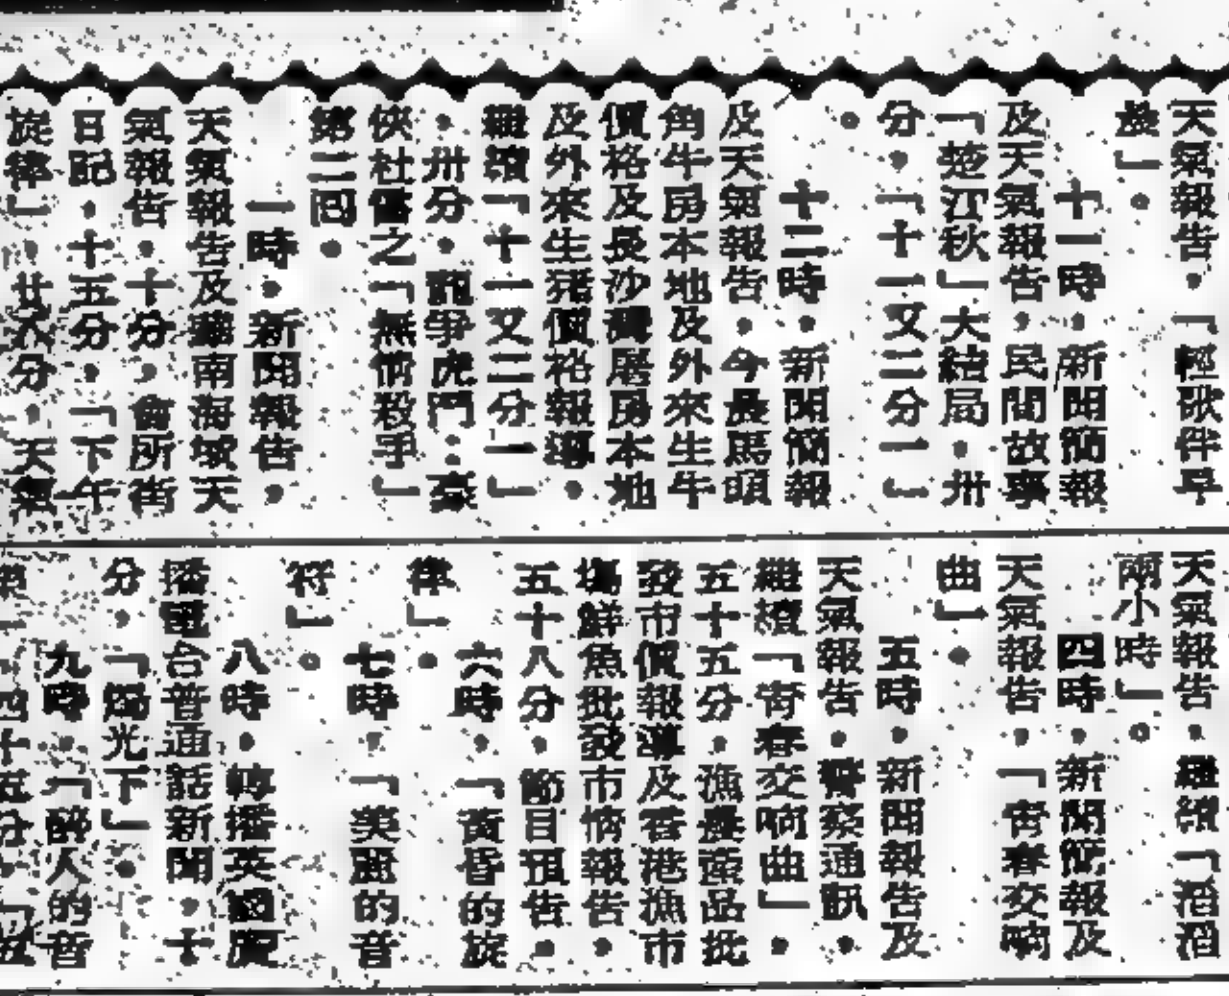 天氣報告，「輕歌伴早
晨」。
十一時，新聞簡報
及天氣報告，民間故事
「楚江秋」大結局，卅
分，「十一又二分一」
。
十二時，新聞簡報
及天氣報告，今晨馬頭
角牛房本地及外來生牛
價格及長沙灣屠房本地
及外來生猪價格報導，
繼續「十一又二分一」
，卅分，龍爭虎鬥：豪
俠杜雷之「無情殺手」
第二回。
一時，新聞報告，
天氣報告及華南海域天
氣報告，十分，會所街
日記，十五分，「下午
旋律」，廿八分，天氣
天氣報告，繼續「滔滔
兩小時」。
四時，新聞簡報及
天氣報告，「青春交响
曲」。
五時，新聞報告及
天氣報告，警察通訊，
繼續「青春交响曲」，
五十五分，漁農產品批
發市價報導及香港漁市
塲鮮魚批發市情報告，
五十八分，節目預告。
六時，「黃昏的旋
律」。
七時，「美麗的音
符」。
八時，轉播英國廣
播電台普通話新聞，十
分，「燭光下」。
九時，「醉人的音
四十五分，